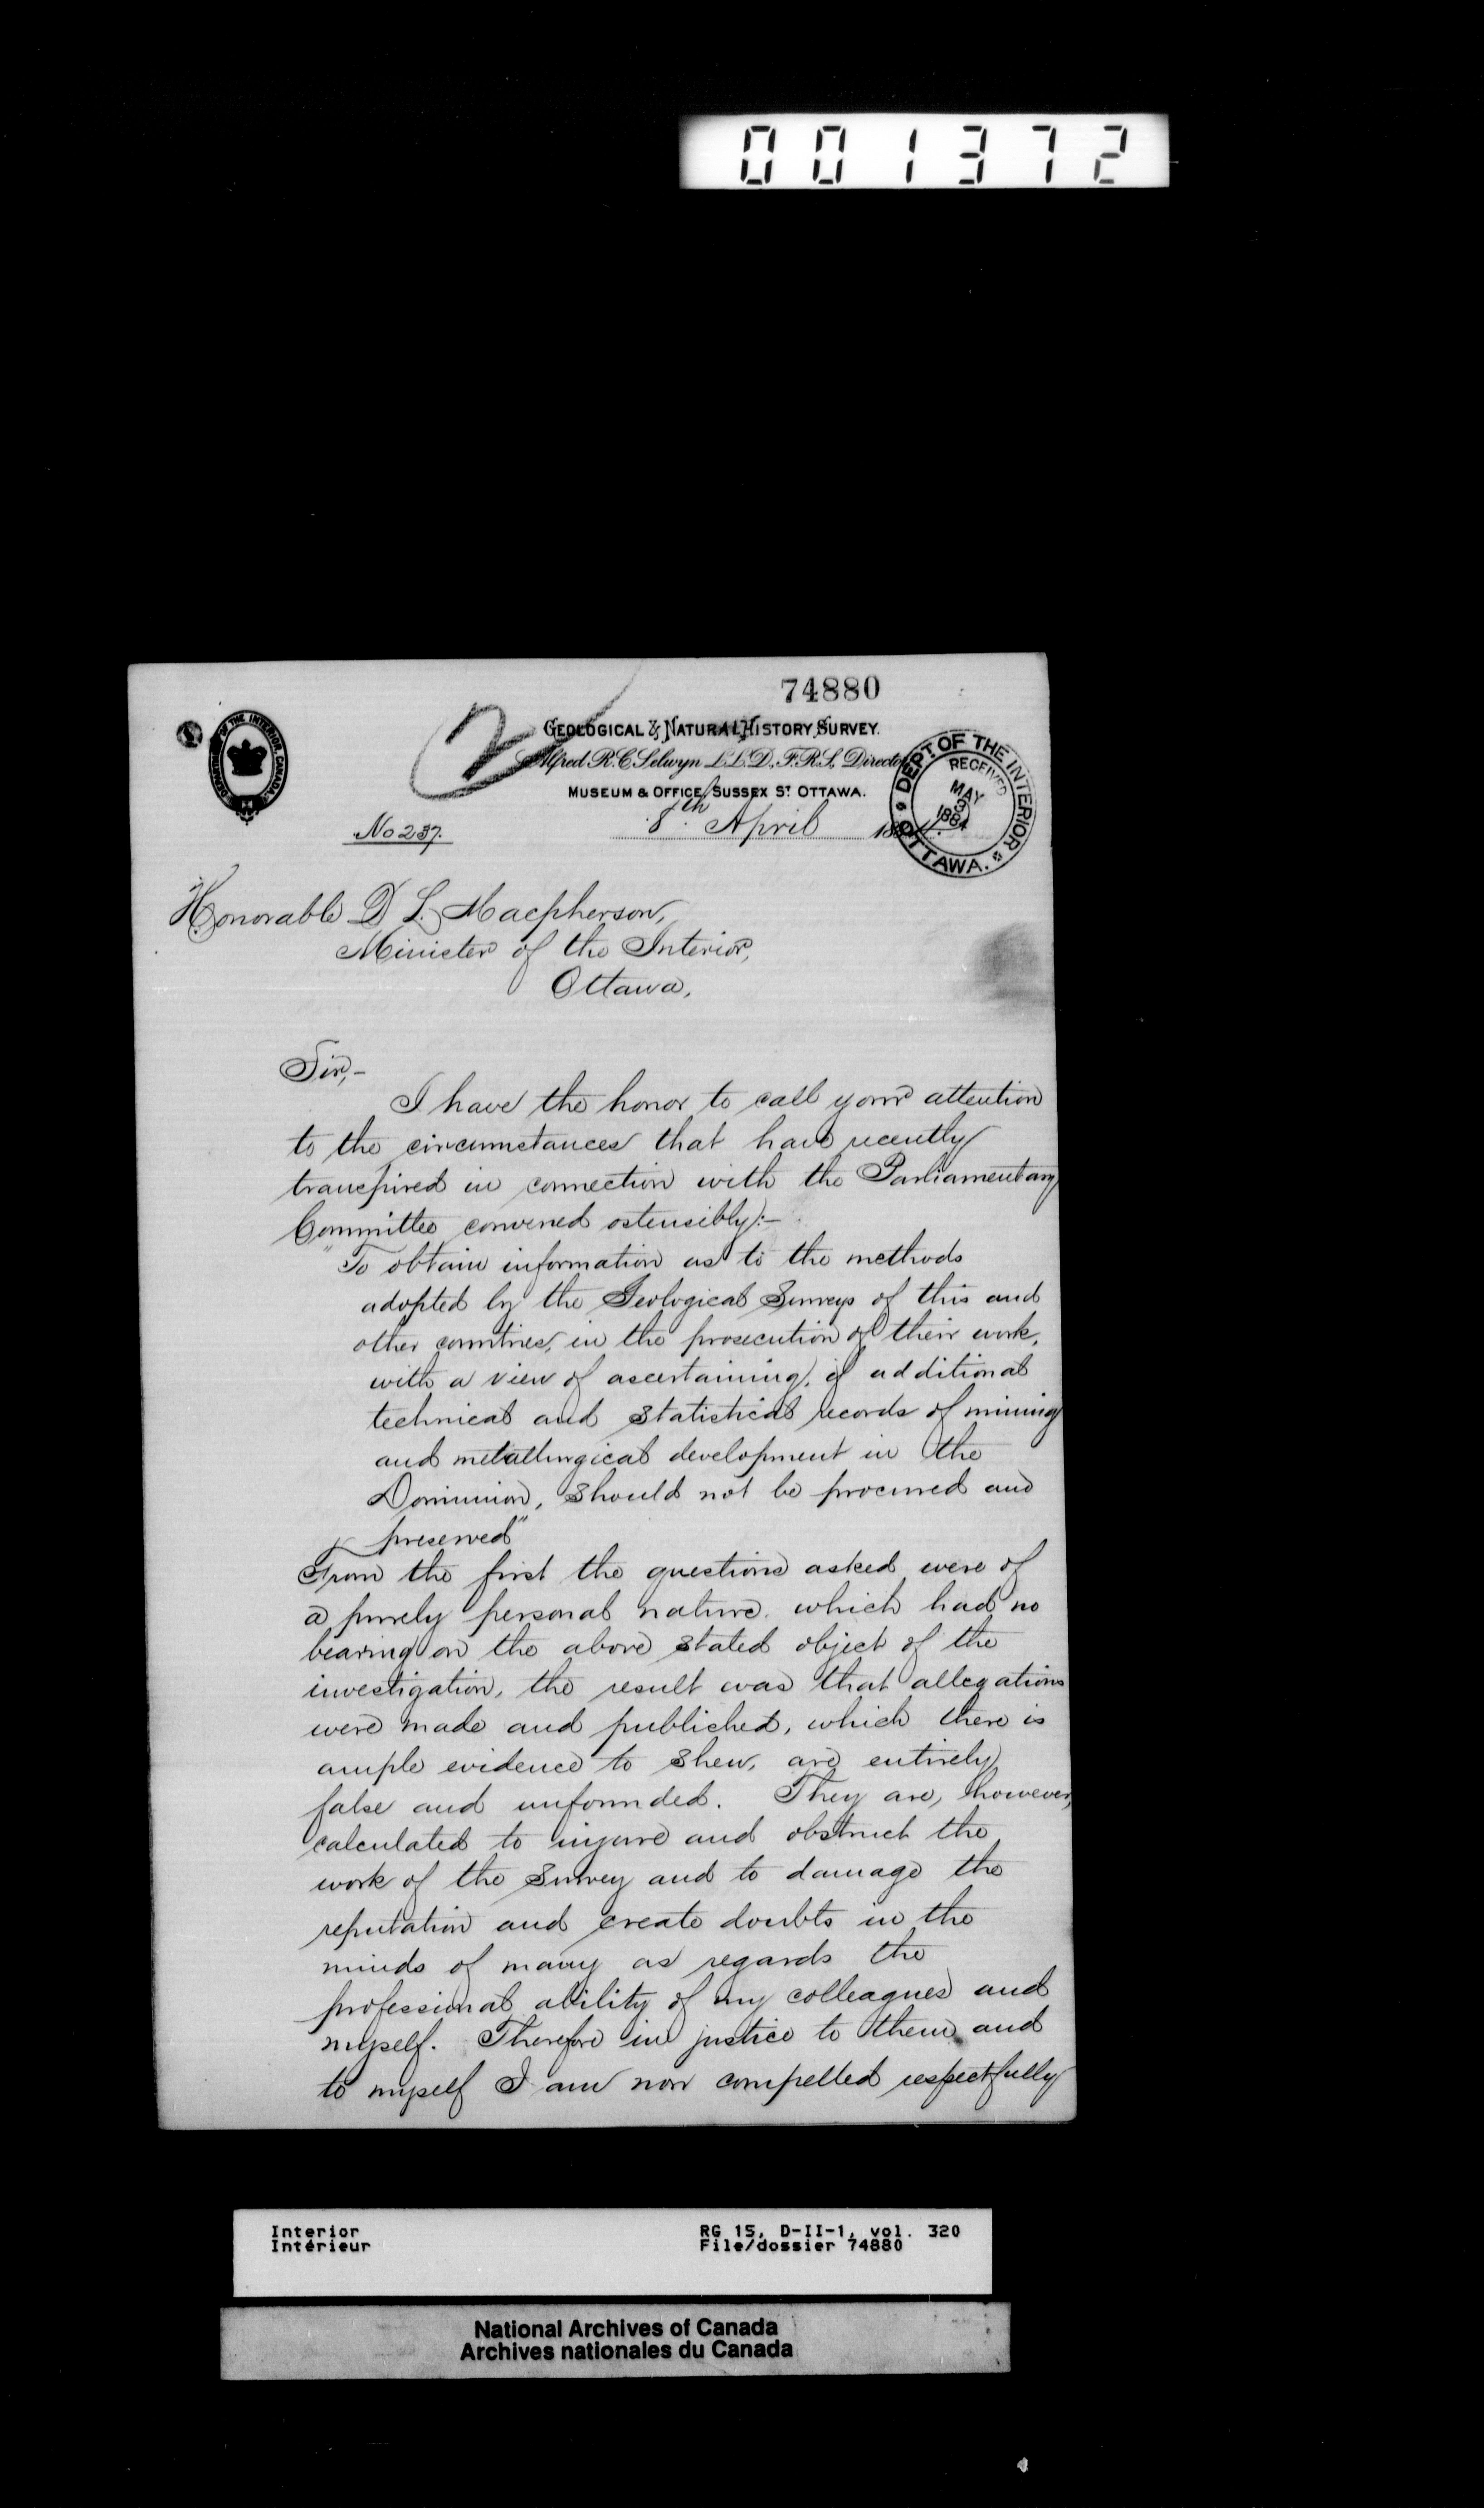 001372
74880
2
DEPARTMENT OF THE INTERIOR, CANADA.
GEOLOGICAL & NATURAL HISTORY SURVEY.
Alfred R.C. Selwyn L.L.D., F.R.S., Director
MUSEUM & OFFICE, SUSSEX ST. OTTAWA.
DEPT. OF THE INTERIOR
RECEIVED
MAY
3
1884
OTTAWA.
No 237.
8th April 1884.
Honorable D L. Macpherson,
Minister of the Interior,
Ottawa,
Sir,-
I have the honor to call your attention
to the circumstances that have recently
transpired in connection with the Parliamentary
Committee convened ostensibly:-
"To obtain information as to the methods
adopted by the Geological Surveys of this and
other countries, in the prosecution of their work,
with a view of ascertaining, if additional
technical and statistical records of mining
and metallurgical development in the
Dominion, should not be procured and
preserved"
From the first the questions asked were of
a purely personal nature, which had no
bearing on the above stated object of the
investigation, the result was that allegations
were made and published, which there is
ample evidence to shew, are entirely
false and unfounded. They are, however,
calculated to injure and obstruct the
work of the Survey and to damage the
reputation and create doubts in the
minds of many as regards the
professional ability of my colleagues and
myself. Therefore in justice to them and
to myself I am now compelled respectfully
Interior
Intérieur
RG 15, D-II-1, vol. 320
File/dossier 74880
National Archives of Canada
Archives nationales du Canada